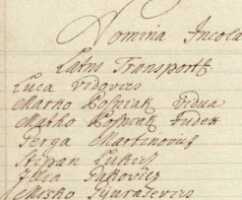 Nomina Incola
Latus Transport
Luca Vidovics
Marko Bosniak Vidua
Matko Bosniak Judex
Gerga Martinovics
Stipan Lukics
Illia Jakovics
Misko Gyurasevics